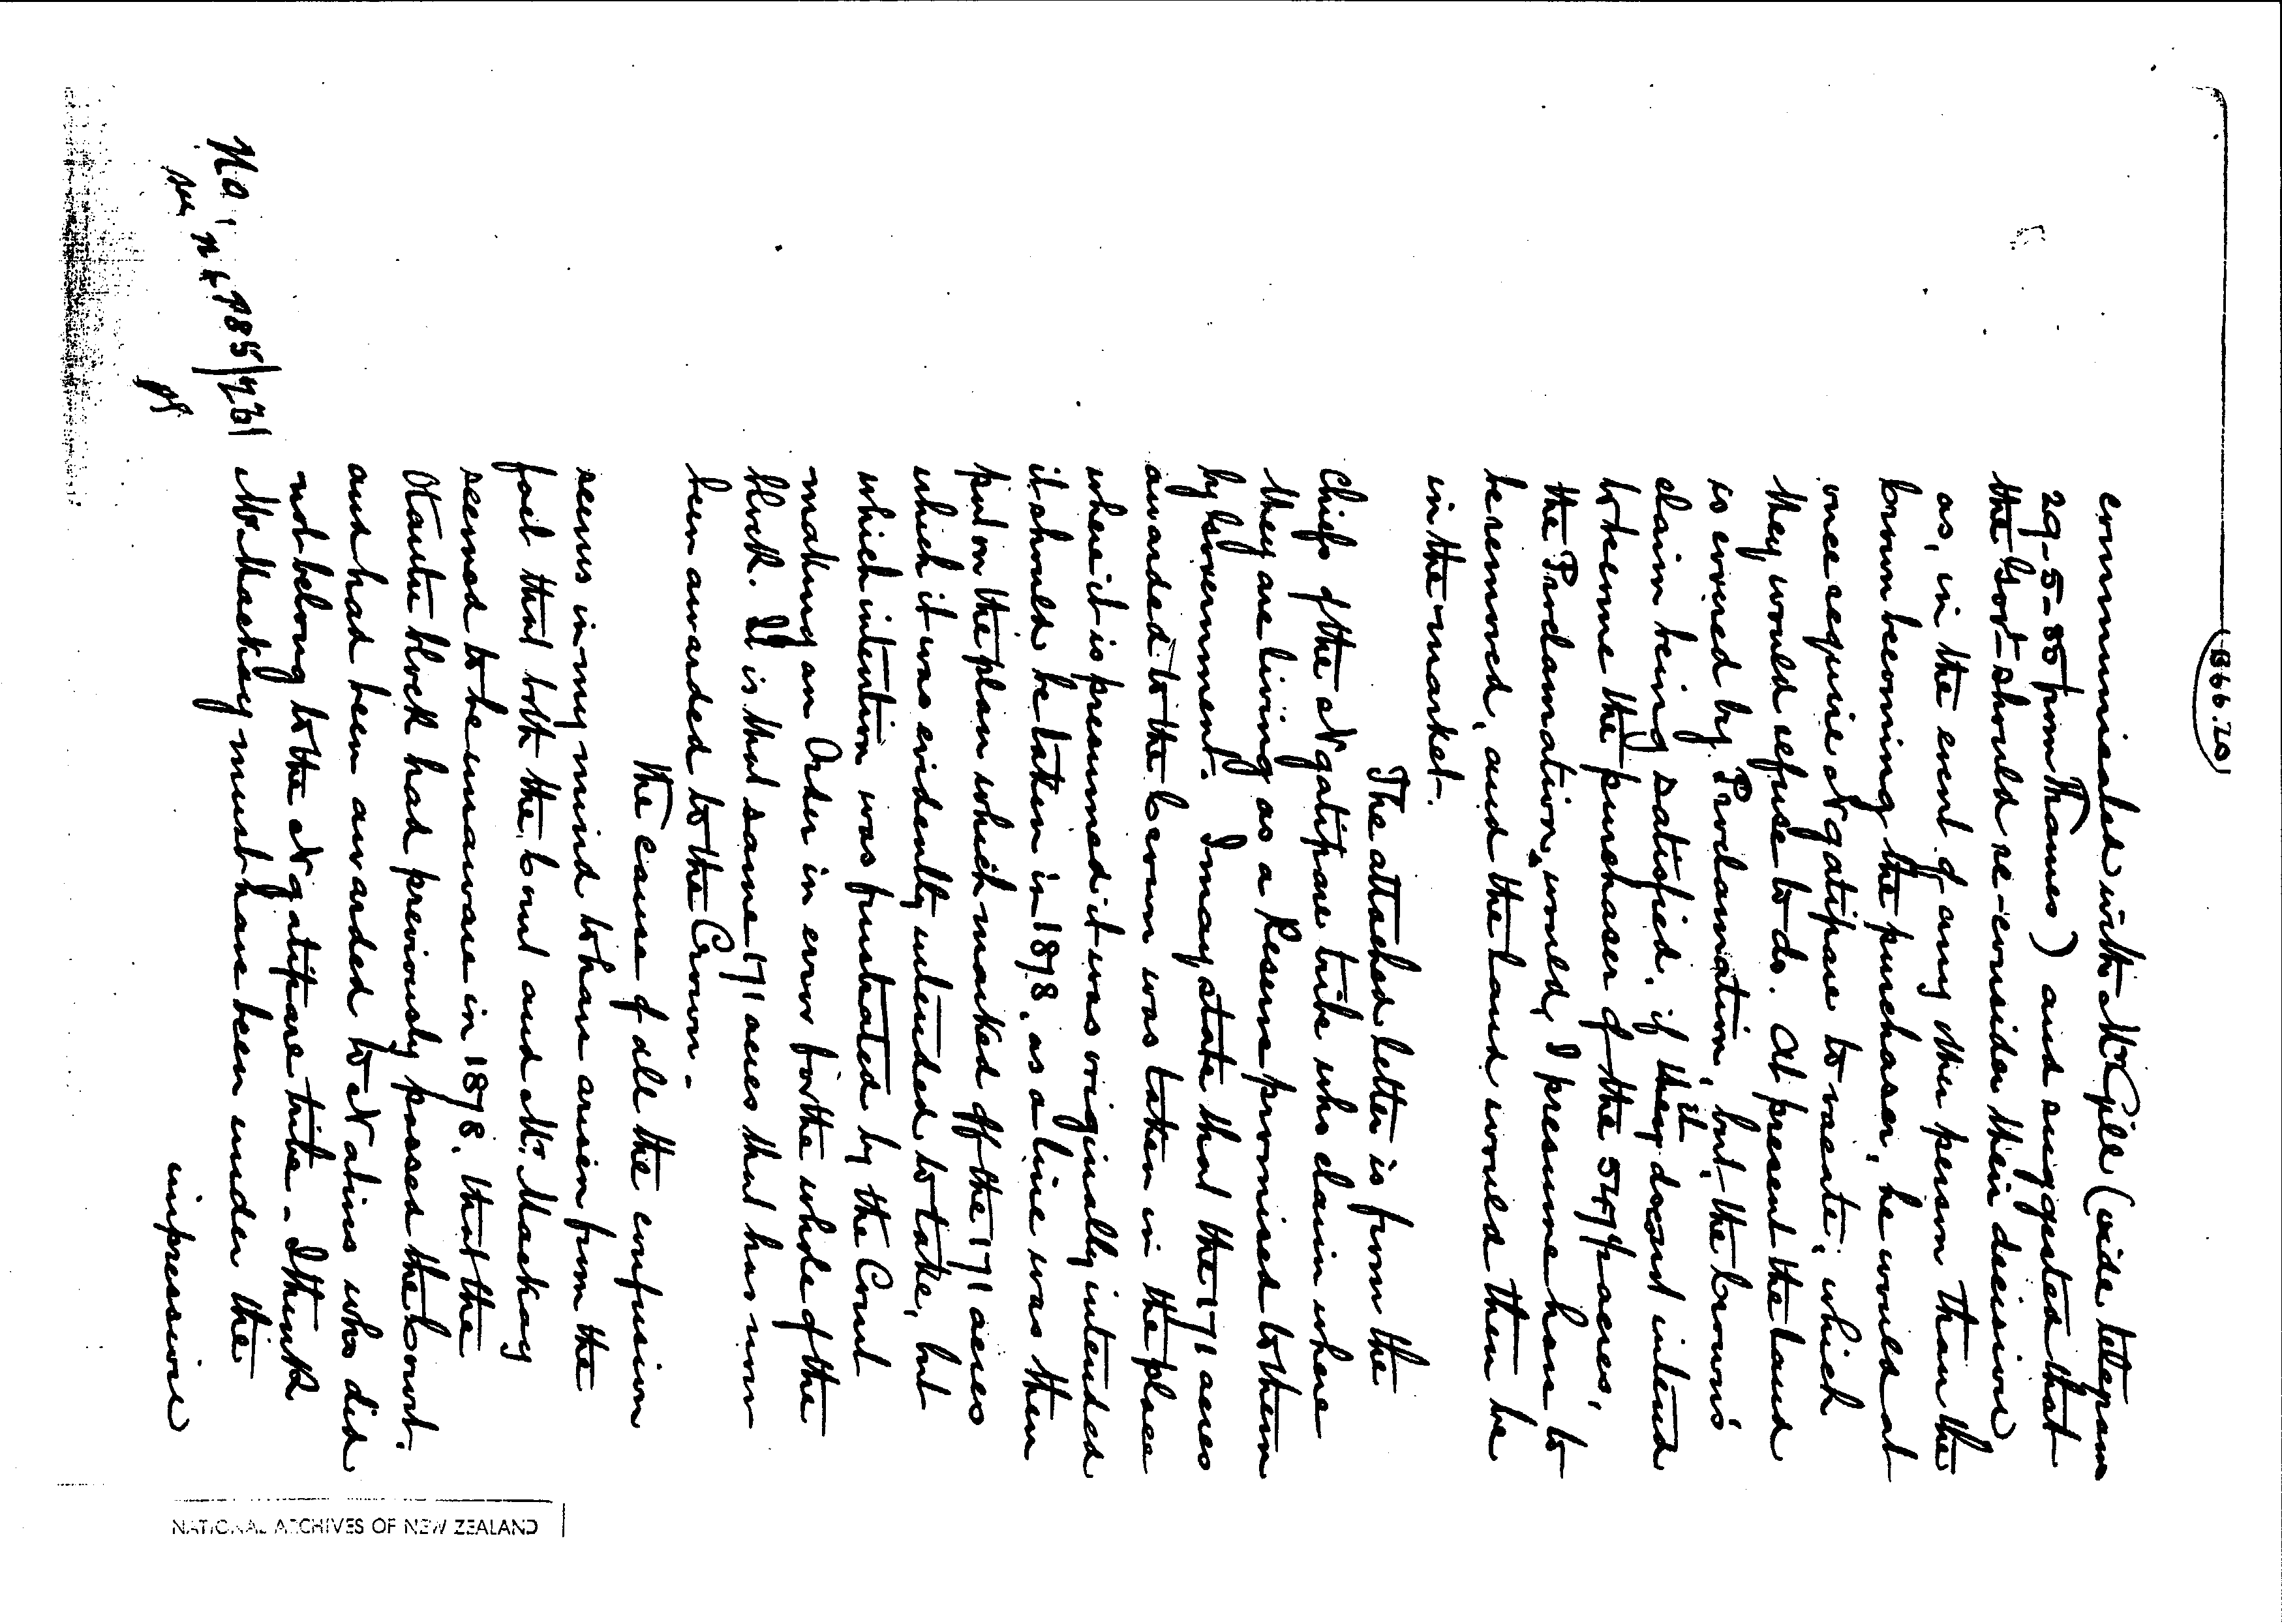 B66.20
communicated with Mr Gill (vide telegram
29-5-85 from Thames) and suggested that
the Govt should re-consider their decision
as, in the event of any other person than the
Crown becoming the purchaser, he would at
once require Ngatipare to vacate; which
they would refuse to do. At present the land
is covered by Proclamation, but, the Crown's
claim being satisfied, if it they does not intend
to become the purchaser of the 547 acres,
the Proclamation, would, I presume have to
be removed, and the land would then be
in the market.
The attached letter is from the
Chiefs of the Ngatipare tribe who claim where
they are living as a Reserve promised to them
by Government. I may state that the 171 acres
awarded to the Crown was taken in the place
where it is presumed it was originally intended
it should be taken in 1878, as a line was then
put on the plan which marked off the 171 acres
which it was evidently intended to take, but
which intention was frustrated by the Court
making an Order in error for the whole of the
block. It is that same 171 acres that has now
been awarded to the Crown.
The cause of all the confusion
seems in my mind to have arisen from the
fact that both the Court and Mr. Mackay
seemed to be unaware in 1878, that the
block had previously passed the Court,
and had been awarded to Natives who did
not belong to the Ngatipare tribe. I think
Mr Mackay must have been under the
impression
NATIONAL ARCHIVES OF NEW ZEALAND